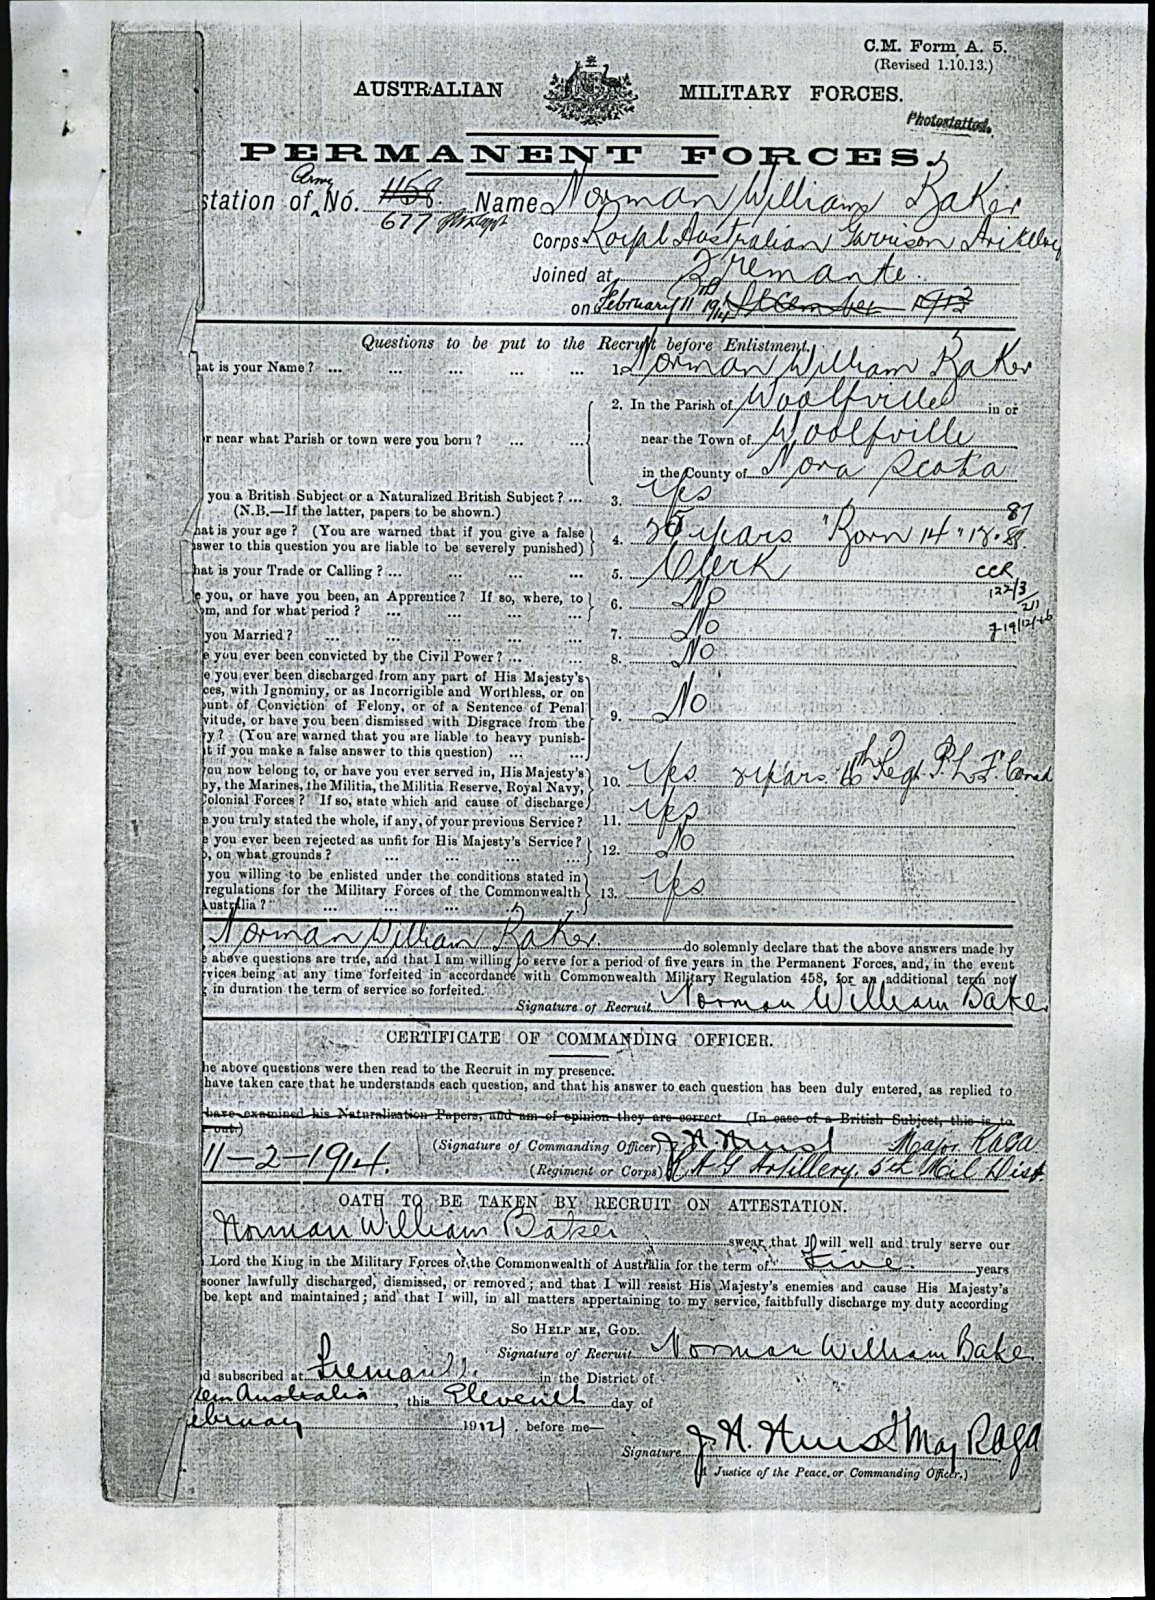 C.M. Form A. 5.
(Revised 1.10.13.)
AUSTRALIAN MILITARY FORCES.
Photostatted.
PERMANENT FORCES.
Army
station of No. 1158 Name Norman William Baker
677
Corps Royal Australian Garrison Artillery
Joined at Fremantle
on February 11 1914 December 1913
Questions to be put to the Recruit before Enlistment.
hat is your Name? ... ... ... ... ... 1. Norman William Baker
2. In the Parish of Woolfville in or
r near what Parish or town were you born? ... ... near the Town of Woolfville
in the County of Nova Scotia
you a British Subject or a Naturalized British Subject? ... 3. Yes
(N.B.—If the latter, papers to be shown.)
87
hat is your age? (You are warned that if you give a false
swer to this question you are liable to be severely punished) 4. 25 years "Born 14" 12. 88.
hat is your Trade or Calling? ... ... ... ... 5. Clerk
CCR
122/3
211
19/12/46
e you, or have you been, an Apprentice? If so, where, to
om, and for what period? ... ... ... ... 6. No
you Married? ... ... ... ... ... 7. No
e you ever been convicted by the Civil Power? ... ... 8. No
e you ever been discharged from any part of His Majesty's
ces, with Ignominy, or as Incorrigible and Worthless, or on
ount of Conviction of Felony, or of a Sentence of Penal
vitude, or have you been dismissed with Disgrace from the
y? (You are warned that you are liable to heavy punish-
t if you make a false answer to this question) ... ... 9. No
ou now belong to, or have you ever served in, His Majesty's
y, the Marines, the Militia, the Militia Reserve, Royal Navy,
Colonial Forces? If so, state which and cause of discharge 10. Yes. 2 years. Regt. P.L.F. Canad
e you truly stated the whole, if any, of your previous Service? 11. Yes
e you ever been rejected as unfit for His Majesty's Service?
o, on what grounds? ... ... ... ... 12. No
you willing to be enlisted under the conditions stated in
regulations for the Military Forces of the Commonwealth
Australia? ... ... ... ... ... 13. Yes
Norman William Baker. do solemnly declare that the above answers made by
e above questions are true, and that I am willing to serve for a period of five years in the Permanent Forces, and, in the event
rvices being at any time forfeited in accordance with Commonwealth Military Regulation 458, for an additional term not
g in duration the term of service so forfeited.
Signature of Recruit Norman William Baker
CERTIFICATE OF COMMANDING OFFICER.
he above questions were then read to the Recruit in my presence.
have taken care that he understands each question, and that his answer to each question has been duly entered, as replied to
have examined his Naturalization Papers, and am of opinion they are correct (In case of a British Subject, this is to
out.)
(Signature of Commanding Officer) J. A. Hurst Major RAGA
11-2-1914. (Regiment or Corps) R A G Artillery, 5th Mil Dist.
OATH TO BE TAKEN BY RECRUIT ON ATTESTATION.
Norman William Baker swear that I will well and truly serve our
Lord the King in the Military Forces of the Commonwealth of Australia for the term of Five years
sooner lawfully discharged, dismissed, or removed; and that I will resist His Majesty's enemies and cause His Majesty's
be kept and maintained; and that I will, in all matters appertaining to my service, faithfully discharge my duty according
SO HELP ME, GOD.
Signature of Recruit Norman William Baker
d subscribed at Fremantle in the District of
tern Australia, this Eleventh day of
ebruary 1914. before me—
Signature J. A. Hurst Maj RAGA
(A Justice of the Peace or Commanding Officer.)